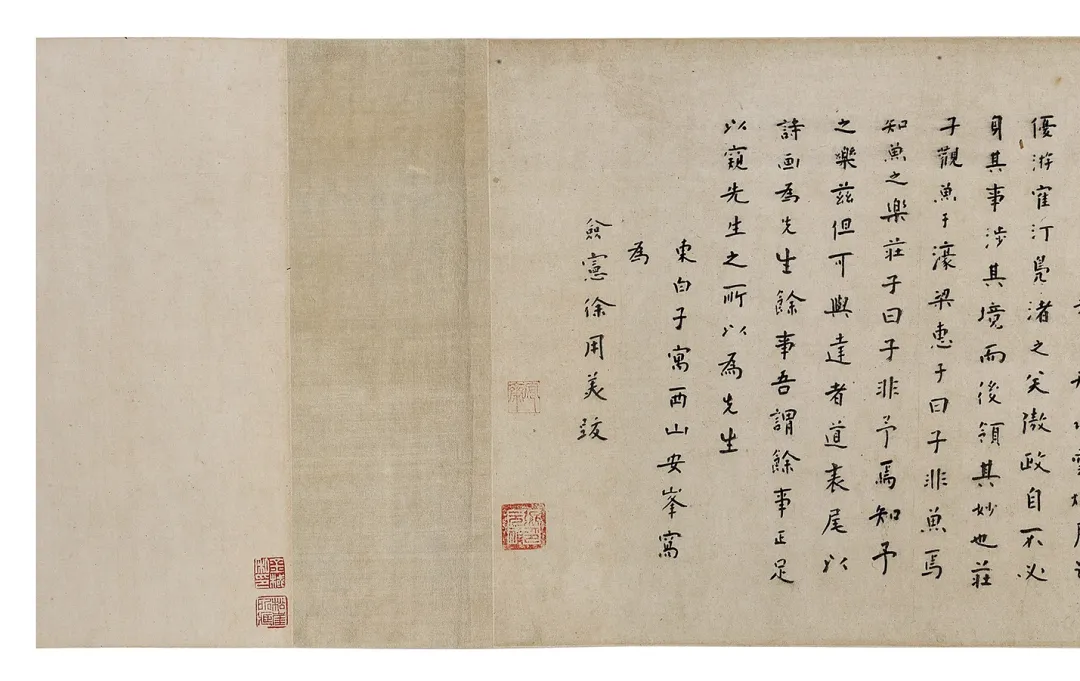 優游寉汀鳧渚之笑傲政自不必
身其事涉其境而後領其妙也莊
子觀魚于濠梁惠子曰子非魚焉
知魚之樂莊子曰子非予焉知予
之樂茲但可與達者道表尾以
詩画為先生餘事吾謂餘事正足
以窺先生之所以為先生
東白子寓西山安峯寫
為
僉憲徐用美跋